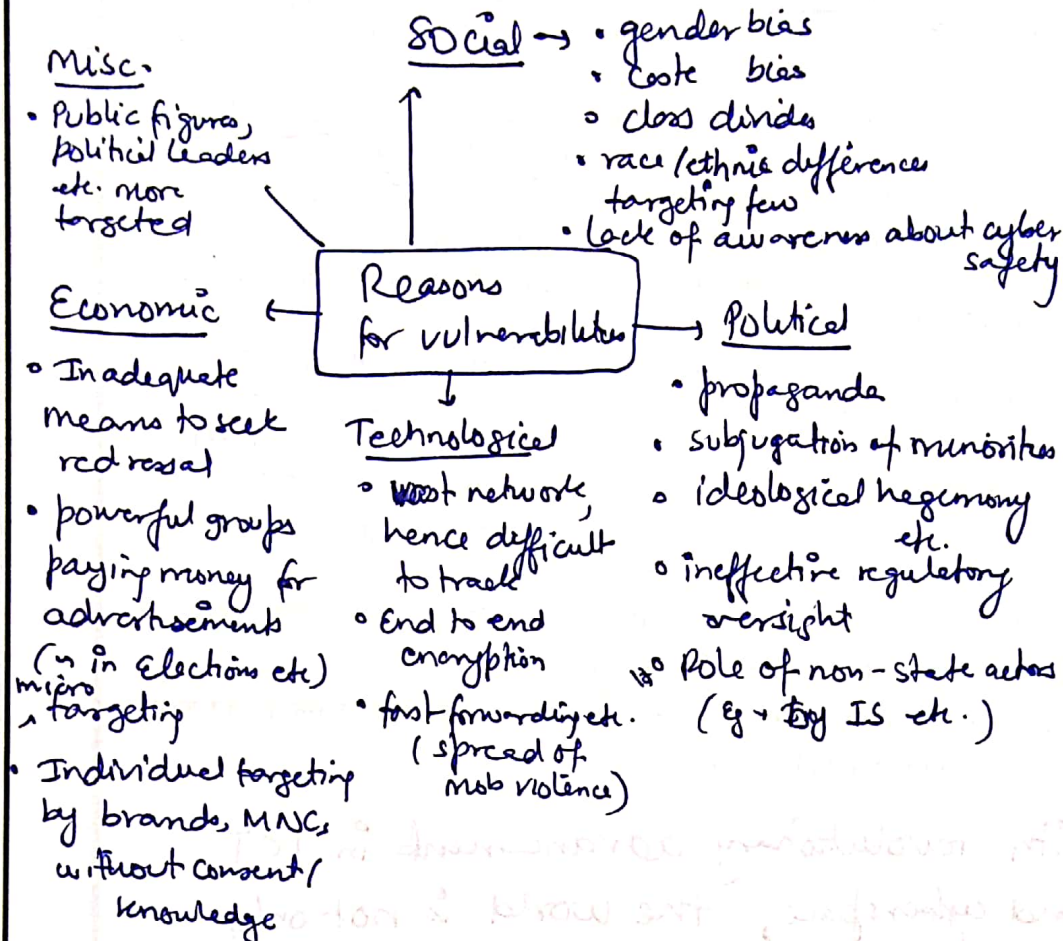 Misc.
• Public figures,
political leaders
etc. more
targeted
Social → • gender bias
• caste bias
• class divides
• race/ethnic differences
targeting few
• Lack of awareness about cyber
safety
Reasons
for vulnerabilities
Economic
• Inadequate
means to seek
redressal
• powerful groups
paying money for
advertisements
(in Elections etc)
micro
^ targeting
• Individual targeting
by brands, MNCs
without consent/
knowledge
Technological
• vast network,
hence difficult
to track
• End to end
encryption
• fast forwarding etc.
(spread of
mob violence)
Political
• propaganda
• subjugation of minorities
• ideological hegemony
etc.
• ineffective regulatory
oversight
• Role of non-state actors
(Eg → by IS etc.)